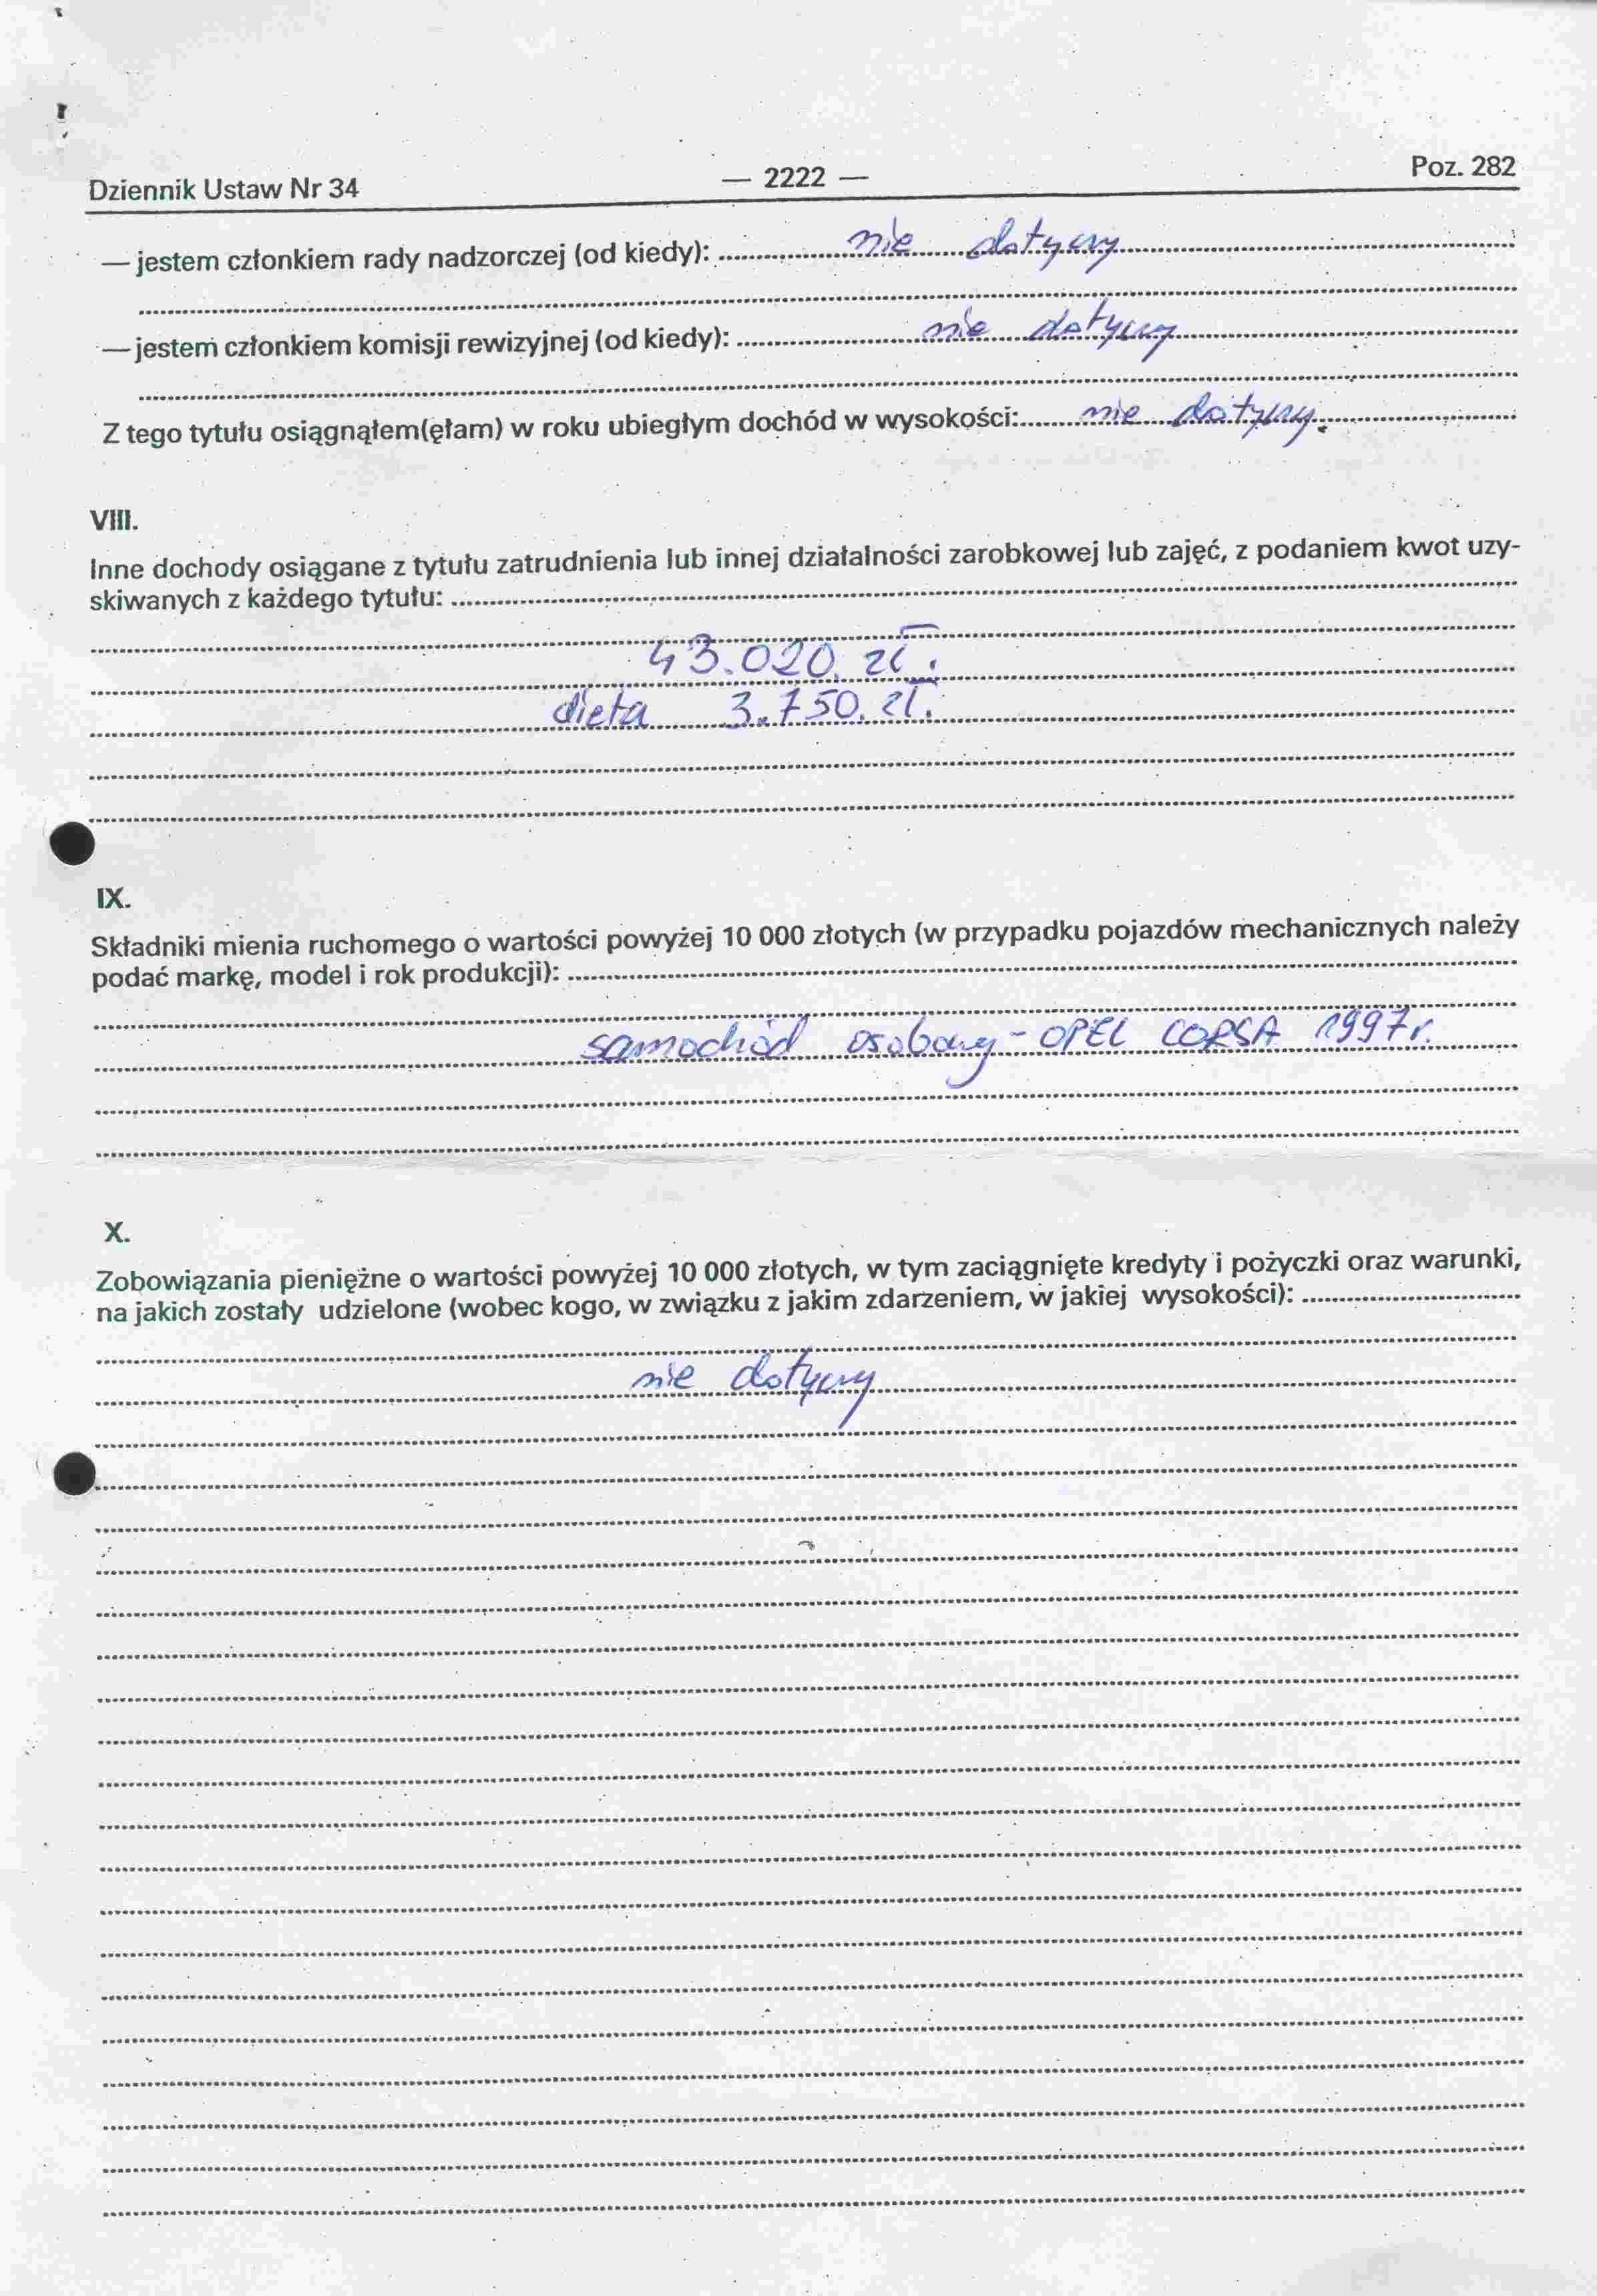 Dziennik Ustaw Nr 34 — 2222 — Poz. 282
— jestem członkiem rady nadzorczej (od kiedy): nie dotyczy
— jestem członkiem komisji rewizyjnej (od kiedy): nie dotyczy
Z tego tytułu osiągnąłem(ęłam) w roku ubiegłym dochód w wysokości: nie dotyczy.
VIII.
Inne dochody osiągane z tytułu zatrudnienia lub innej działalności zarobkowej lub zajęć, z podaniem kwot uzy-
skiwanych z każdego tytułu:
43.020. zł.
dieta 3.750. zł.
IX.
Składniki mienia ruchomego o wartości powyżej 10 000 złotych (w przypadku pojazdów mechanicznych należy
podać markę, model i rok produkcji):
samochód osobowy - OPEL CORSA 1997r.
X.
Zobowiązania pieniężne o wartości powyżej 10 000 złotych, w tym zaciągnięte kredyty i pożyczki oraz warunki,
na jakich zostały udzielone (wobec kogo, w związku z jakim zdarzeniem, w jakiej wysokości):
nie dotyczy